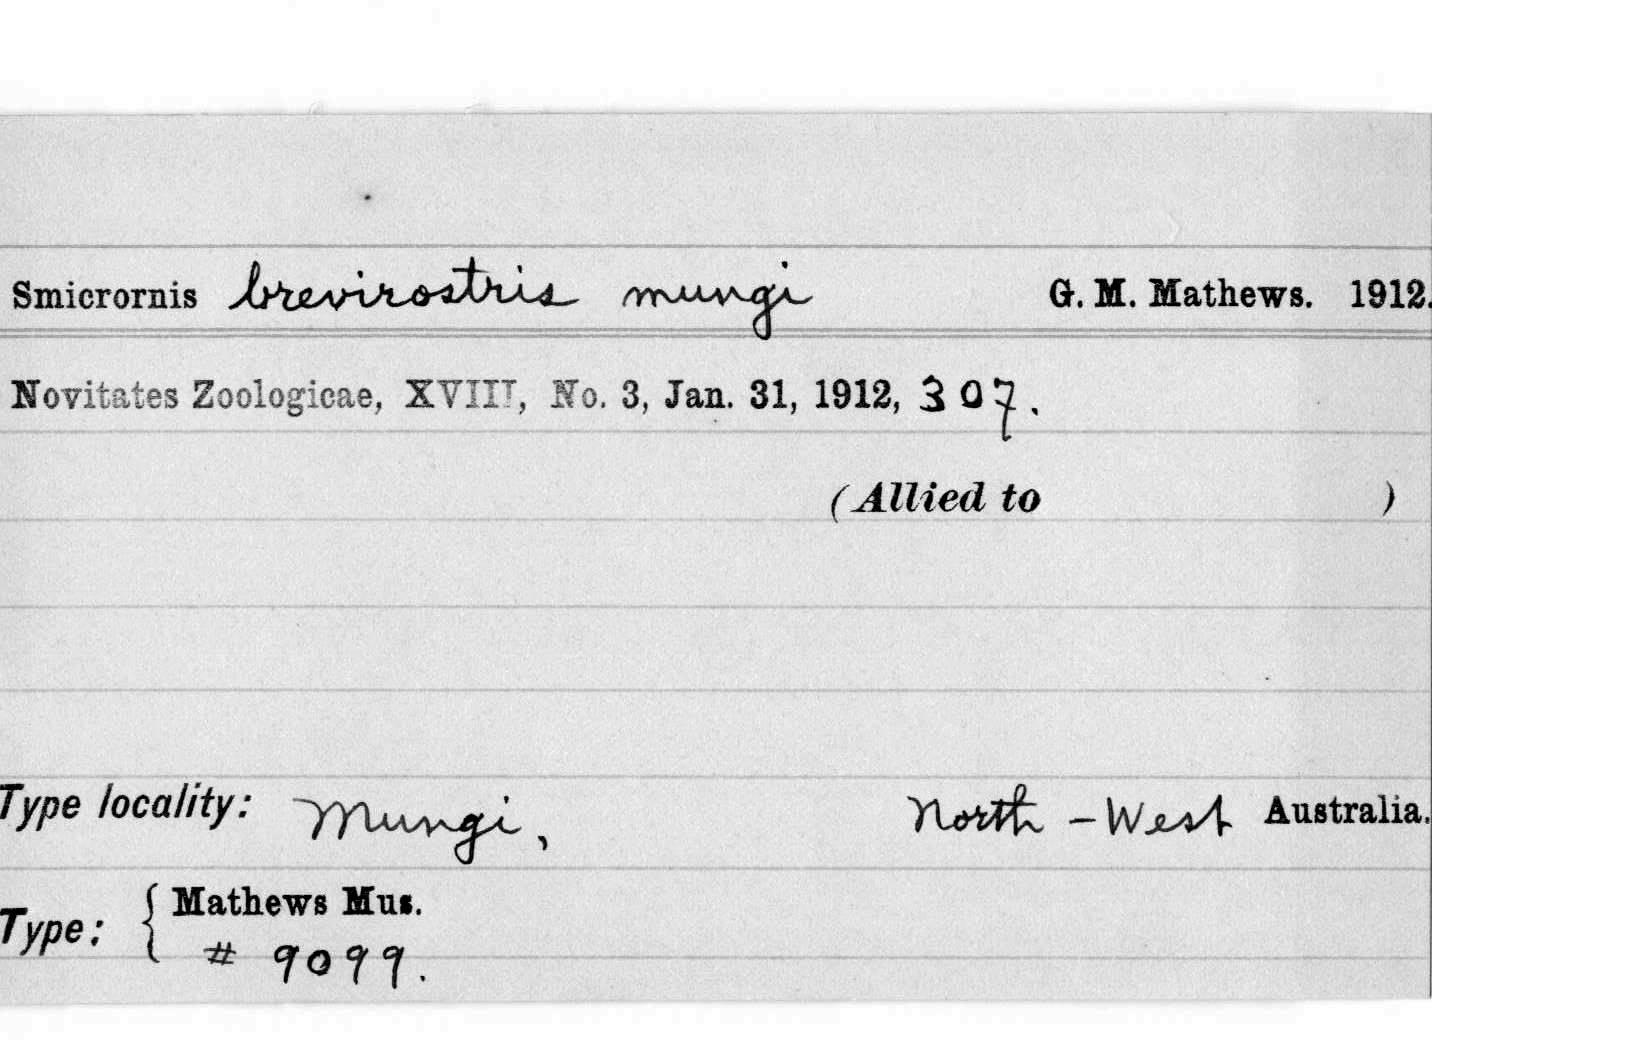 Smicrornis brevirostris mungi G. M. Mathews. 1912.
Novitates Zoologicae, XVIII, No. 3, Jan. 31, 1912, 307.
(Allied to )
Type locality: Mungi, North-West Australia.
Type: { Mathews Mus.
# 9099.